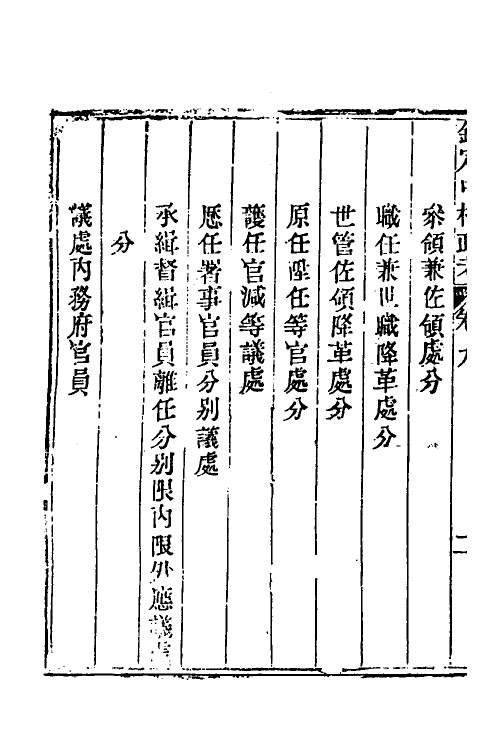 欽定中樞政考 卷九 二
叅領兼佐領處分
職任兼世職降革處分
世管佐領降革處分
原任陞任等官處分
護任官減等議處
歷任署事官員分别議處
承緝督緝官員離任分别限内限外應議處
分
議處内務府官員